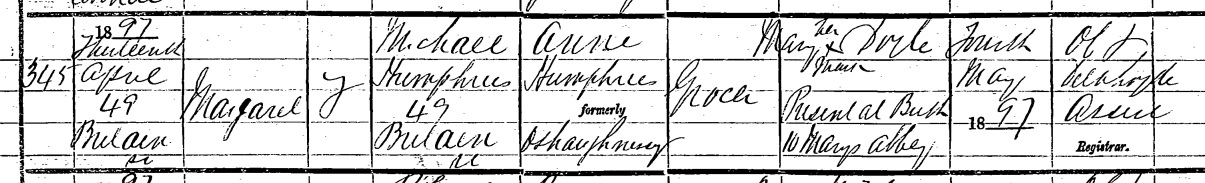 1897
Thirteenth
345 April
49
Britain
St
Margaret
f
Michael
Humphries
49
Britain
St
Anne
Humphries
formerly
Oshaughnessy
Grocer
Mary her x Doyle
mark
Present at Birth
10 Marys abbey
Fourth
May
1897
Assist
Registrar.